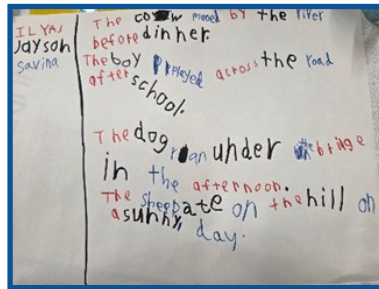 ILYAS
Jayson
Savina
The cow mooed by the river
before dinner.
The boy played across the road
after school.
The dog ran under the brige
in the afternoon.
The sheep ate on the hill on
a sunny day.